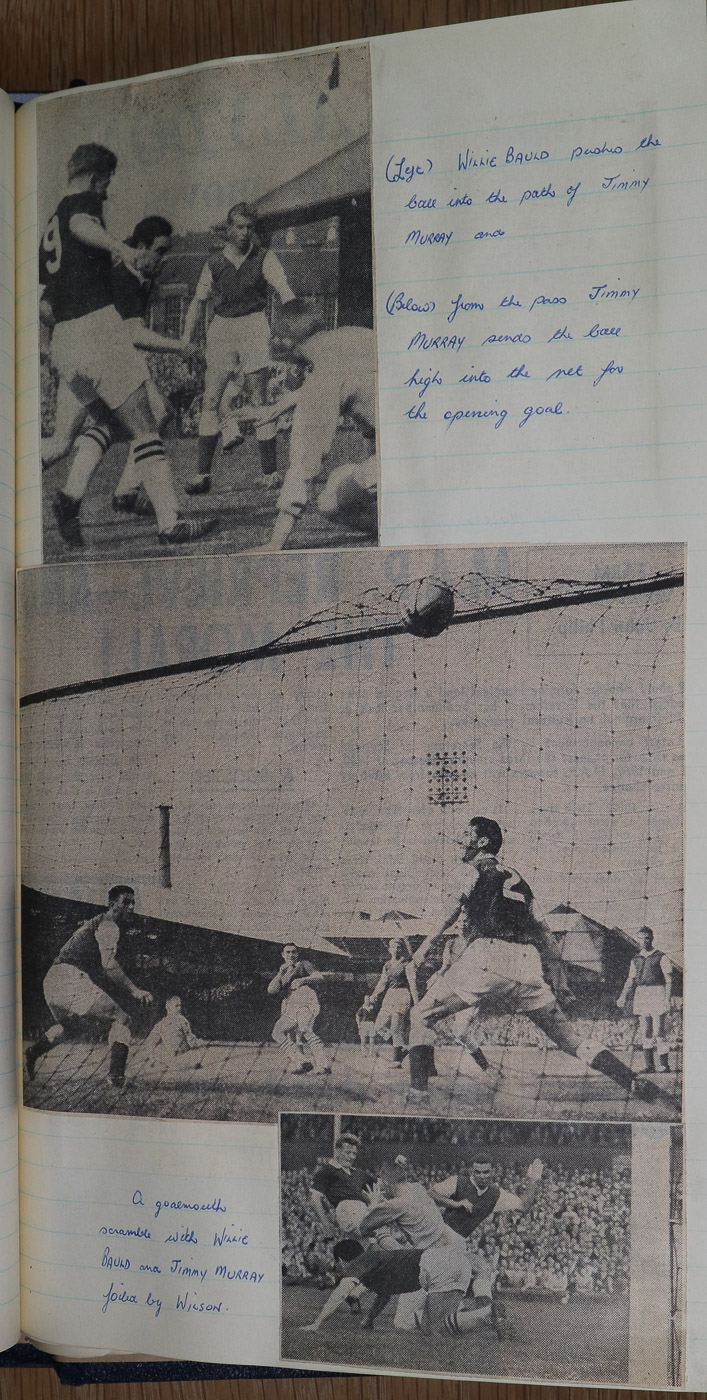 (Left) WILLIE BAULD pushes the
ball into the path of JIMMY
MURRAY and
(Below) from the pass JIMMY
MURRAY sends the ball
high into the net for
the opening goal.
9
2
A goalmouth
scramble with WILLIE
BAULD and JIMMY MURRAY
foiled by WILSON.